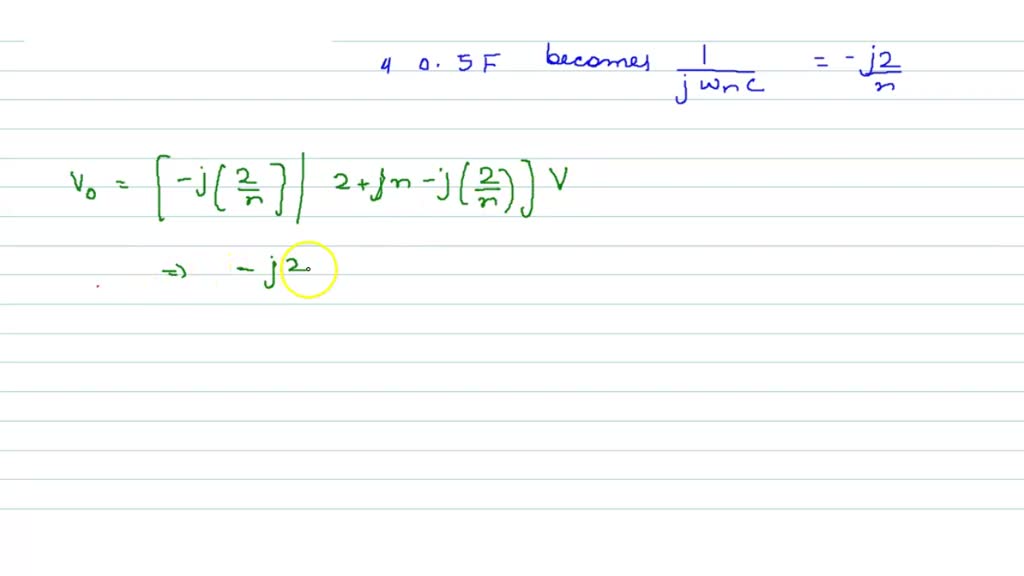 & 0.5F becomes 1/(jωnC) = -j2/n
V₀ = [-j(2/n}| 2+jn-j(2/n)] V
⇒ -j2